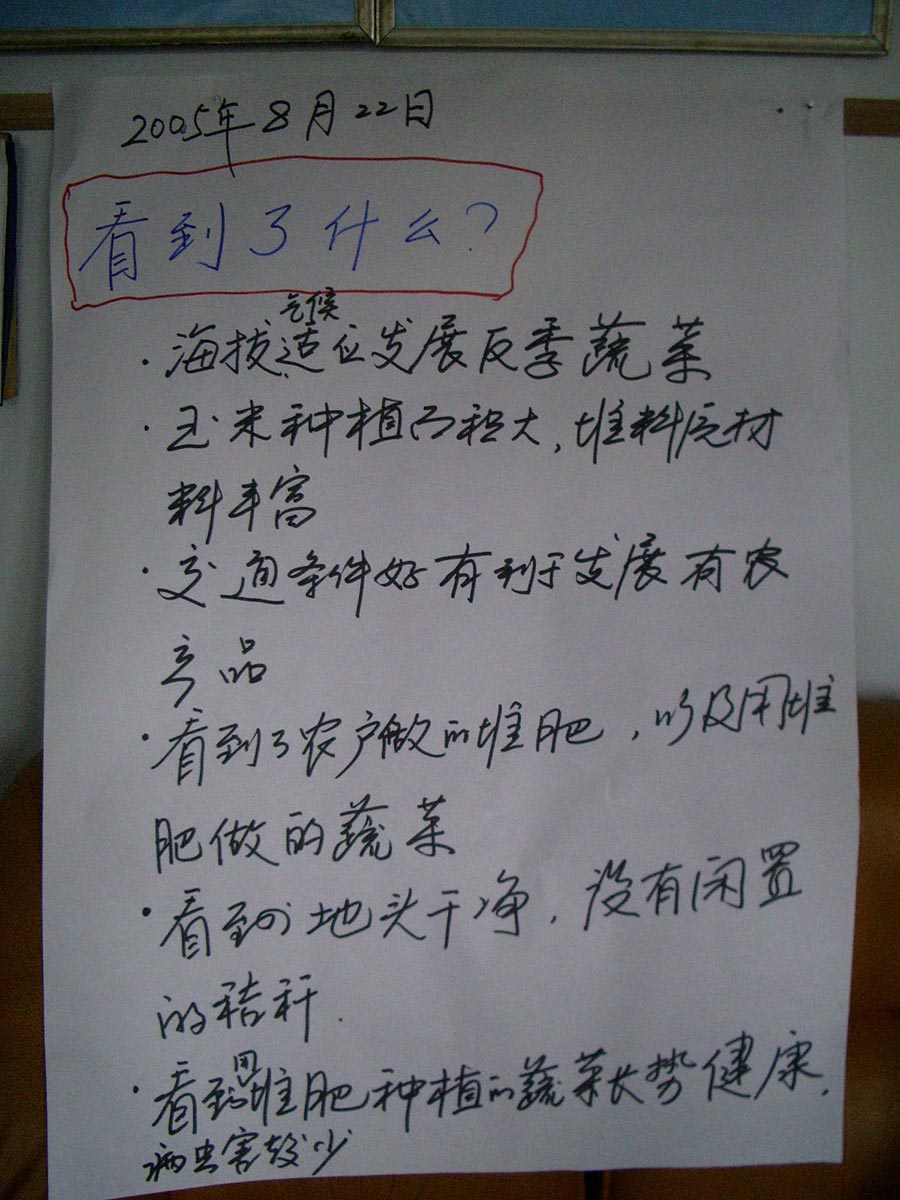 2005年8月22日
看到了什么?
气候
·海拔适应发展反季蔬菜
·玉米种植面积大,堆料原材
料丰富
·交通条件好有利于发展有农
产品
·看到了农户做的堆肥,以及用堆
肥做的蔬菜
·看到 地头干净,没有闲置
的秸秆.
用
·看到堆肥种植的蔬菜长势健康,
病虫害较少